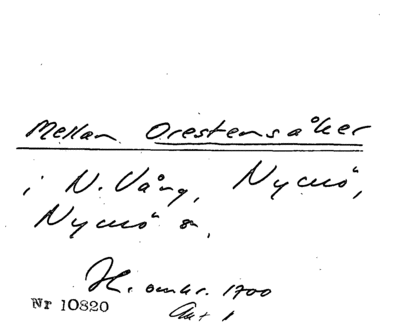 Mellan Orestensåker
i N. Vång, Nycmö,
Nycmö s.
H. omkr. 1700
Akt 1
Nr 10820